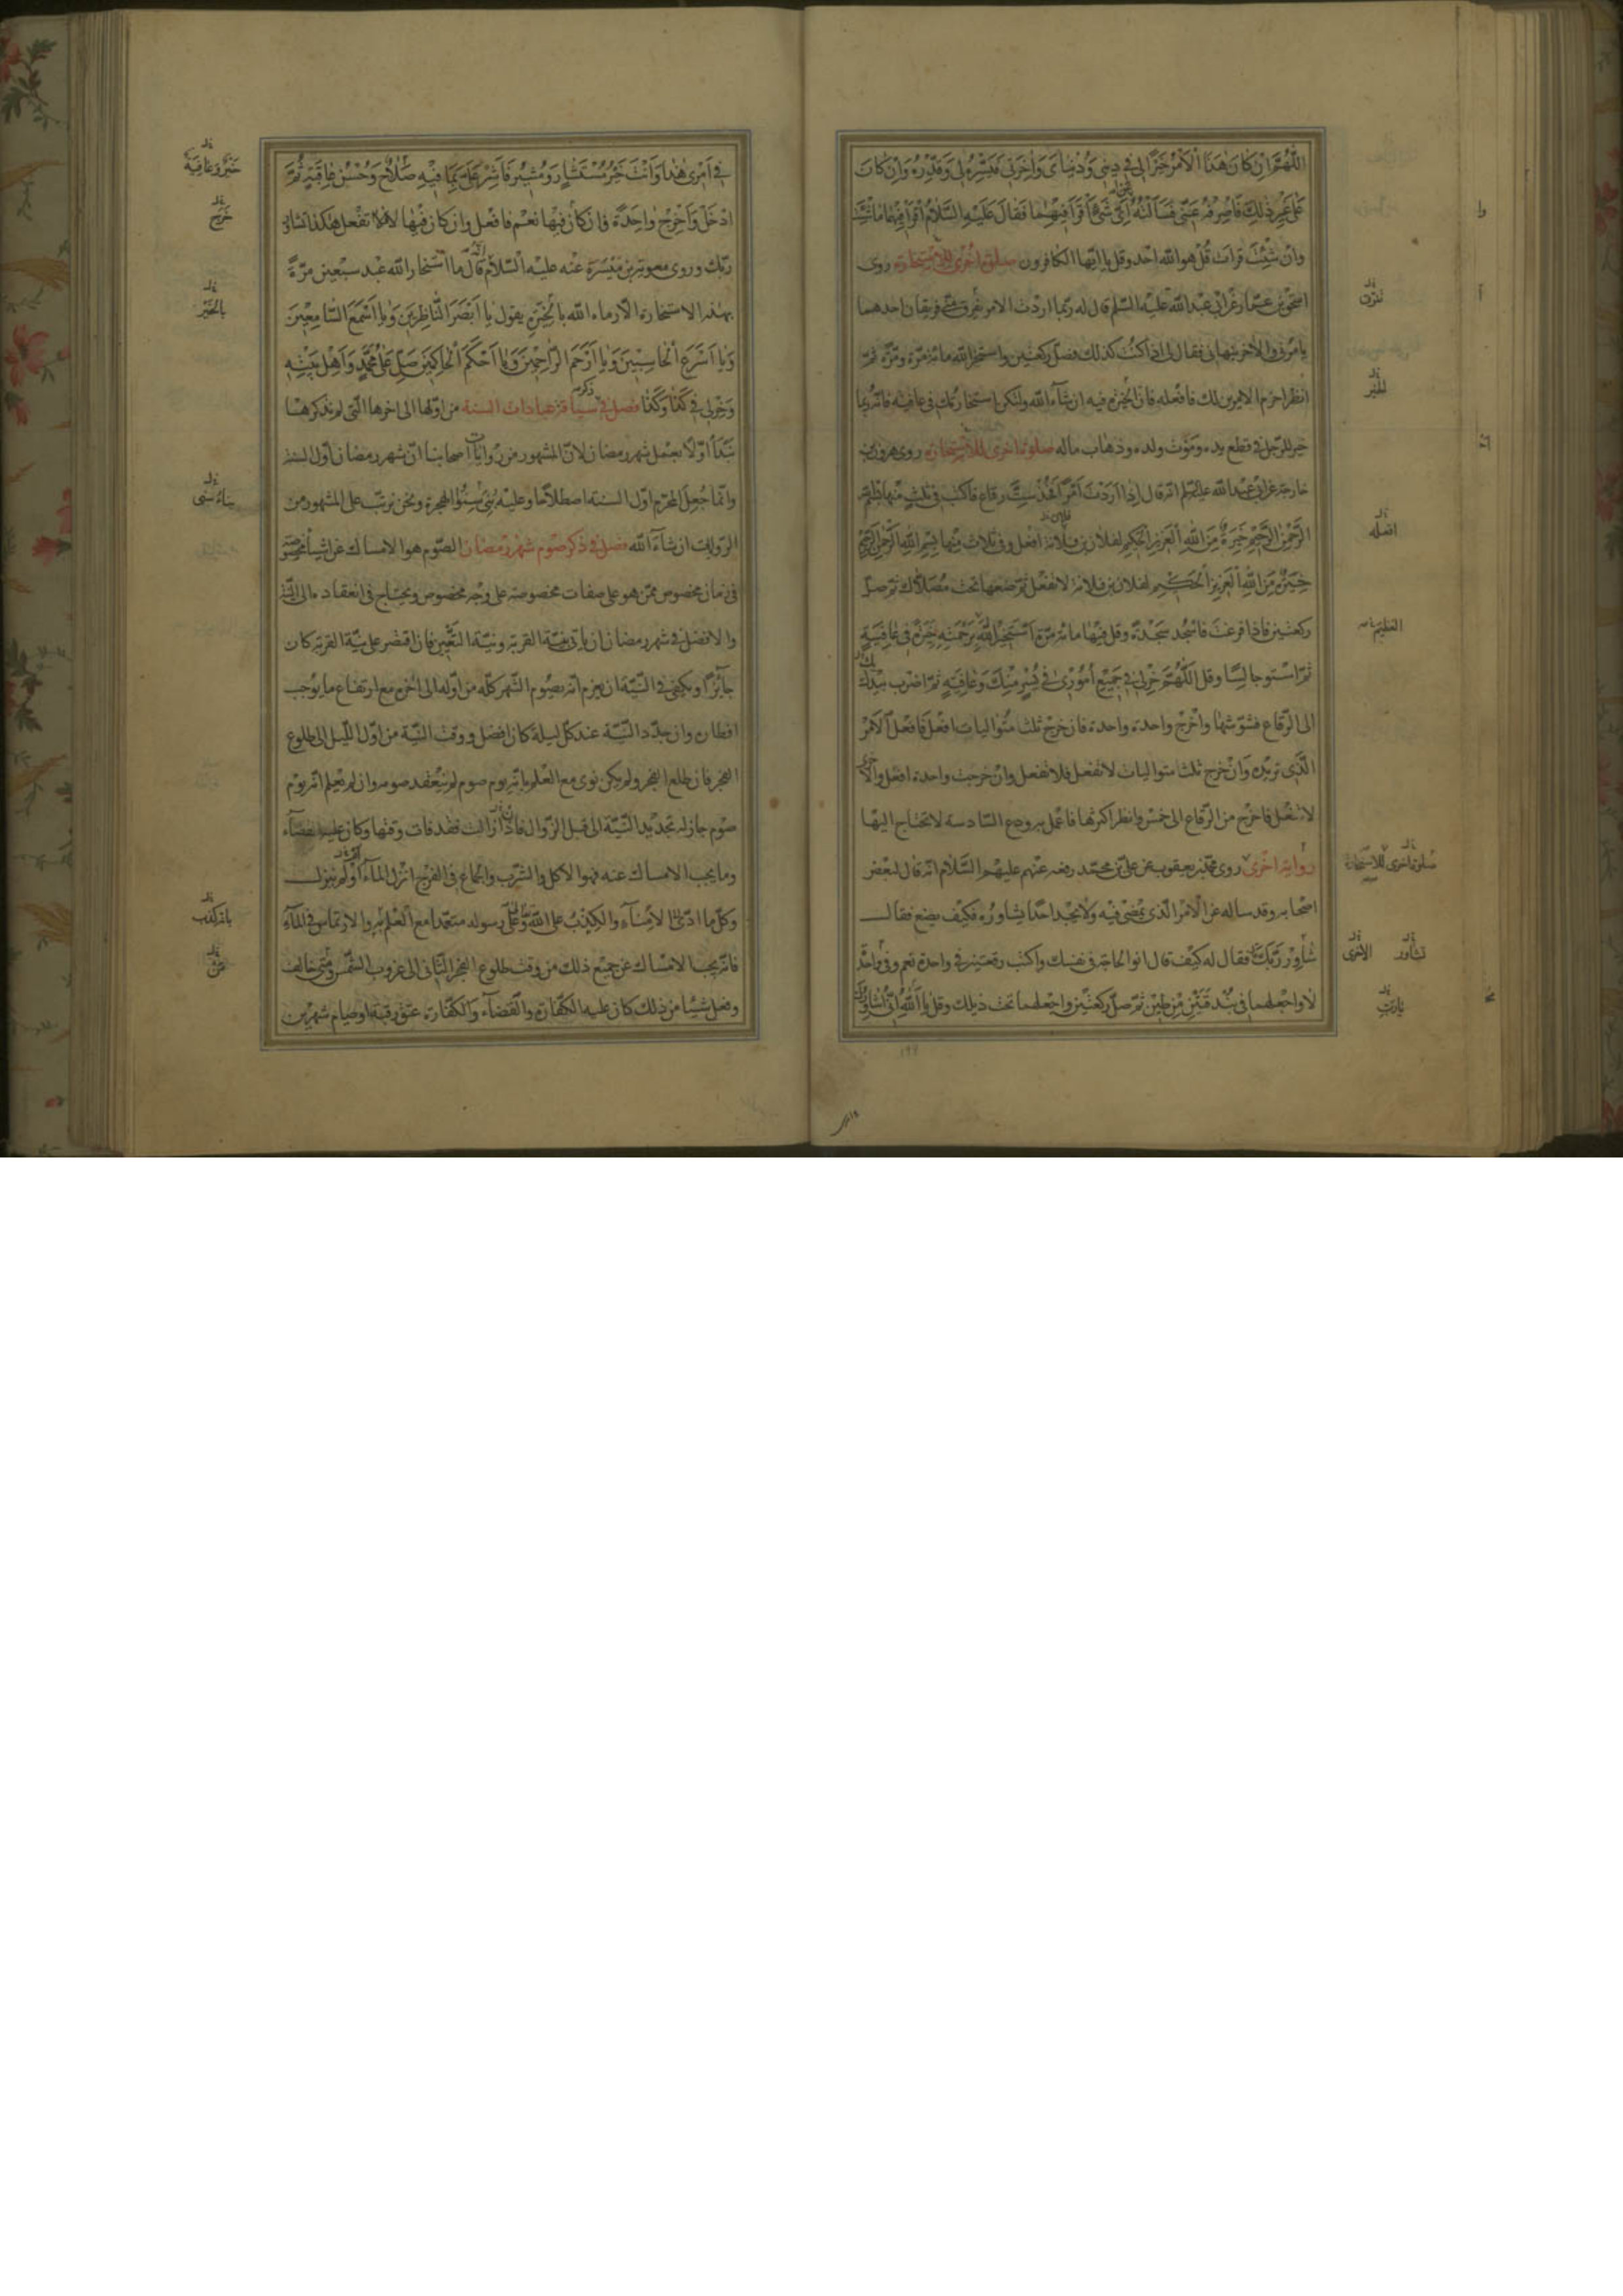 اللّهُمَّ اِنْ كانَ هذَا الْاَمْرُ خَيْرًا لي في ديني وَدُنْيايَ وَاخِرَتي فَيَسِّرْهُ لي وَقَدِّرْهُ وَاِنْ كانَ
عَلى غَيْرِ ذلِكَ فَاصْرِفْهُ عَنّي فَسَاَلْتُهُ اَيَّ شَيْءٍ اَقْرَأُ فيهِما فَقالَ عَلَيْهِ السَّلامُ اقْرَأْ فيهِما ما شِئْتَ
وان شِئْتَ قرات قُلْ هو الله احد وقل يا ايّها الكافرون صلوة اُخرى للاستخارة روى
اسحٰق بن عمّار عن ابي عبد الله عليه السّلم قال قال له ربّما اردت الامر تفرق منّي فريقان احدهما
يامرني والاخر ينهاني فقال لي اذا كنت كذلك فصلّ ركعتين واستخر الله مائة مرّة ومرّة ثمّ
انظر احزم الامرين لك فافعله فانّ الخيرة فيه ان شآء الله ولتكن استخارتك في عافية فانّه ربّما
خير للرّجل في قطع يده وموت ولده وذهاب ماله صلوة اخرى للاستخارة روى هرون بن
خارجة عن ابي عبد الله عليه السّلم انّه قال اِذا اَرَدْتَ اَمْرًا فَخُذْ ستّ رقاع فاكتب في ثلث منها بِسْمِ اللهِ
الرَّحْمنِ الرَّحيمِ خِيَرَةٌ مِنَ اللهِ الْعَزيزِ الْحَكيمِ لفلان بن فلانة افعل وفي ثلاث منها بِسْمِ اللهِ الرَّحْمنِ الرَّحيمِ
خِيَرَةٌ مِنَ اللهِ الْعَزيزِ الْحَكيمِ لفلان بن فلانة لا تفعل ثمّ ضعها تحت مُصَلّاك ثمّ صلّ
ركعتين فاذا فرغت فاسْجُد سَجْدَة وقل فيها مائة مرّة اَسْتَخيرُ اللهَ بِرَحْمَتِهِ خِيَرَةً في عافِيَةٍ
ثمّ استو جالسًا وقل اَللّهُمَّ خِرْ لي في جَميعِ اُمُوري في يُسْرٍ مِنْكَ وَعافِيَةٍ ثمّ اضرب بيدك
الى الرّقاع فشوّشها واخرج واحدة واحدة فان خرج ثلث متواليات افعل فافعل الامر
الّذي تريده وان خرج ثلث متواليات لا تفعل فلا تفعل وان خرجت واحدة افعل والاخرى
لا تفعل فاخرج من الرّقاع الى خمس وانظر اكثرها فاعمل به ودع السّادسة لا تحتاج اليها
رواية اخرى روى محمّد بن يعقوب عن عليّ بن محمّد رفعه عنهم عليهم السَّلام انّه قال لبعض
اصحابه وقد ساله عن الامر الّذي يمضي فيه ولا يجد احدًا يشاوره فكيف يصنع فقال
شاوِرْ رَبَّكَ فقال له كيف قال انو الحاجة في نفسك واكتب رقعتين في واحدة نعم وفي واحدة
لا واجعلهما في بندقتين من طين ثمّ صلّ ركعتين واجعلهما تحت ذيلك وقل يا اَللهُ اِنّي اُشاوِرُكَ
العظيم
افعله
صلوة اخرى للاستخارة
تشاور
الاخرى
في اَمْري هذا وَاَنْتَ خَيْرُ مُسْتَشارٍ وَمُشيرٍ فَاَشِرْ عَلَيَّ بِما فيهِ صَلاحٌ وَحُسْنُ عاقِبَةٍ ثُمَّ
ادخل وَاَخْرِجْ واحِدَة فان كان فيها نعم فافعل وان كان فيها لا لا تفعل هكذا تشاور
ربّك وروى معوية بن ميسرة عنه عليه السّلام قال ما استخار الله عبد سبعين مرّة
بهذه الاستخارة الّا رماه الله بالخيرة يقول يا اَبْصَرَ النّاظِرينَ وَيا اَسْمَعَ السّامِعينَ
وَيا اَسْرَعَ الْحاسِبينَ وَيا اَرْحَمَ الرّاحِمينَ وَيا اَحْكَمَ الْحاكِمينَ صَلِّ عَلى مُحَمَّدٍ وَاَهْلِ بَيْتِهِ
وَخِرْ لي في كَذا وَكَذا فصل في سياقة عبادات السنة من اوّلها الى اخرها الّتي لم نذكرها
نبدأ اوّلًا بعمل شهر رمضان لانّ المشهور من روايات اصحابنا انّ شهر رمضان اوّل السنة
وانّما جعل المحرّم اوّل السنة اصطلاحًا وعليه بني سنو الهجرة ونحن نرتّب على المشهور من
الرّوايات ان شآء الله فصل في ذكر صوم شهر رمضان الصّوم هو الامساك عن اشيآء مخصوصة
في زمان مخصوص ممّن هو على صفات مخصوصة على وجه مخصوص ويحتاج في انعقاده الى النّيّة
والافضل في شهر رمضان ان ياتي بنيّة القربة ونيّة التّعيين فان اقتصر على نيّة القربة كان
جآئزًا ويكفي في النّيّة ان يعزم انّه يصوم الشّهر كلّه من اوّله الى اخره مع ارتفاع ما يوجب
افطاره وان جدّد النّيّة عند كلّ ليلة كان افضل ووقت النّيّة من اوّل اللّيل الى طلوع
الفجر فان طلع الفجر ولم يكن نوى مع العلم بانّه يوم صوم لم ينعقد صومه وان لم يعلم انّه يوم
صوم جاز له تجديد النّيّة الى قبل الزّوال فاذا زالت فقد فات وقتها وكان عليه القضآء
وما يجب الامساك عنه فهو الاكل والشّرب والجماع في الفرج انزل المآء او لم ينزل
وكلّ ما ادّى الى الامنآء والكذب على الله وعلى رسوله متعمّدًا مع العلم به والارتماس في المآء
فانّه يجب الامساك عن جميع ذلك من وقت طلوع الفجر الثّاني الى غروب الشّمس ومتى خالف
وفعل شيئًا من ذلك كان عليه الكفّارة والقضآء والكفّارة عتق رقبة او صيام شهرين
خَيْرٌ وَعافِيَة
بالخير